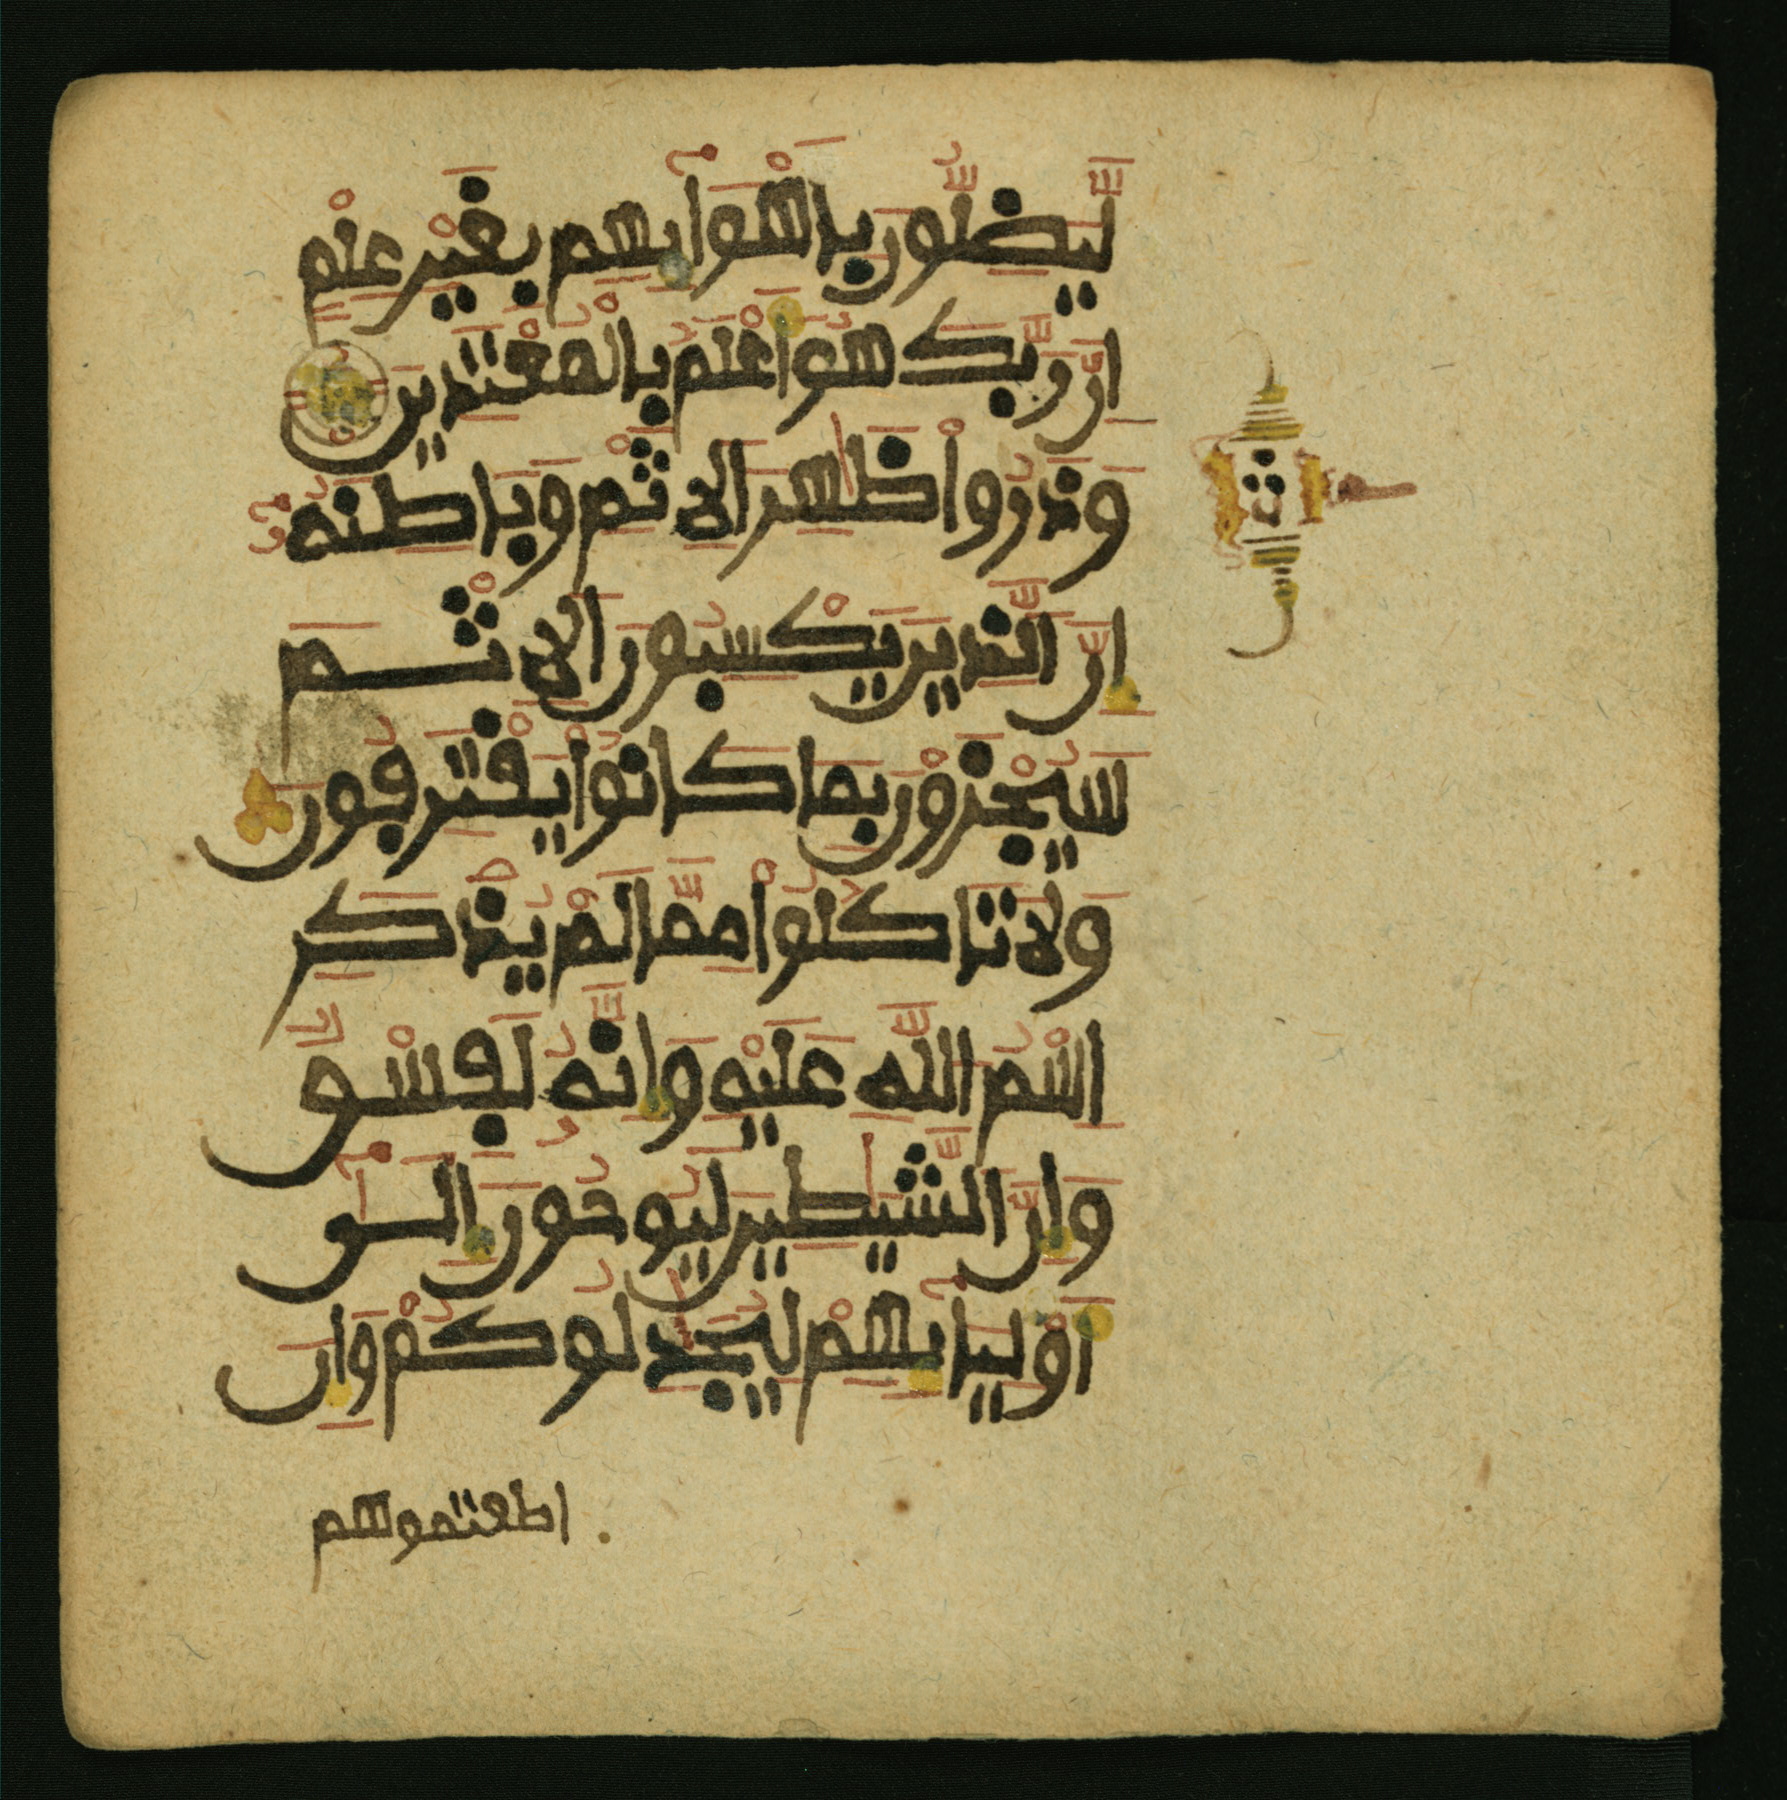 لَّيَضِلُّونَ بِأَهْوَآئِهِم بِغَيْرِ عِلْمٍ
إِنَّ رَبَّكَ هُوَ أَعْلَمُ بِالْمُعْتَدِينَ
وَذَرُوا ظَٰهِرَ الْإِثْمِ وَبَاطِنَهُۥٓ
إِنَّ الَّذِينَ يَكْسِبُونَ الْإِثْمَ
سَيُجْزَوْنَ بِمَا كَانُوا يَقْتَرِفُونَ
وَلَا تَأْكُلُوا مِمَّا لَمْ يُذْكَرِ
اسْمُ اللَّهِ عَلَيْهِ وَإِنَّهُ لَفِسْقٌ
وَإِنَّ الشَّيَٰطِينَ لَيُوحُونَ إِلَىٰٓ
أَوْلِيَآئِهِمْ لِيُجَٰدِلُوكُمْ وَإِنْ
اطعتموهم
ث